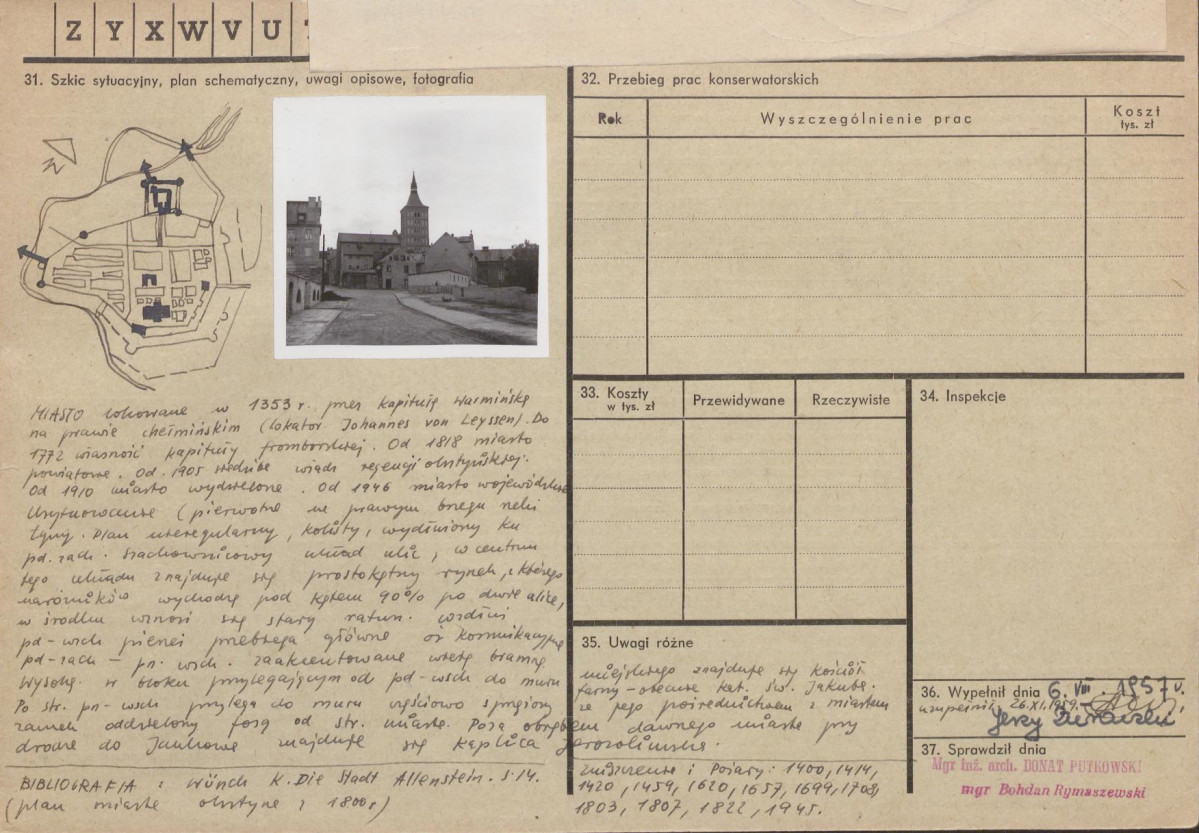 Z Y X W V U
31. Szkic sytuacyjny, plan schematyczny, uwagi opisowe, fotografia
MIASTO lokowane w 1353 r. przez kapitułę warmińską
na prawie chełmińskim (lokator Johannes von Leyssen). Do
1772 własność kapituły fromborskiej. Od 1818 miasto
powiatowe. Od 1905 siedziba władz regencji olsztyńskiej.
Od 1910 miasto wydzielone. Od 1946 miasto wojewódzkie
Usytuowanie (pierwotne na prawym brzegu rzeki
Łyny. Plan nieregularny, kolisty, wydłużony ku
pd. zach. Szachownicowy układ ulic, w centrum
tego układu znajduje się prostokątny rynek, z którego
narożników wychodzą pod kątem 90% po dwie ulice,
w środku wznosi się stary ratusz. Wzdłuż
pd-wsch pierzei przebiega główna oś komunikacyjna
pd-zach – pn. wsch. zaakcentowana wieżą bramną
Wysoką. W bloku przylegającym od pd-wsch do muru
Po str. pn-wsch przylega do muru częściowo sprzężony
zamek oddzielony fosą od str. miasta. Poza obrębem dawnego miasta przy
drodze do Jankowa znajduje się kaplica Jerozolimska.
BIBLIOGRAFIA: Wünch K. Die Stadt Allenstein. s. 14.
(plan miasta Olsztyna z 1800 r)
32. Przebieg prac konserwatorskich
Rok
Wyszczególnienie prac
Koszt
tys. zł
33. Koszty
w tys. zł
Przewidywane
Rzeczywiste
34. Inspekcje
35. Uwagi różne
miejskiego znajduje się kościół
farny – obecnie kat. św. Jakuba.
ze jego pośrednictwem z miastem
zniszczenia i Pożary: 1400, 1414,
1420, 1459, 1620, 1657, 1699, 1708,
1803, 1807, 1822, 1945.
36. Wypełnił dnia 6. VIII. 1957 r.
uzupełnił 26.XI.1959
Jerzy
37. Sprawdził dnia
Mgr inż. arch. DONAT PUTKOWSKI
mgr Bohdan Rymaszewski